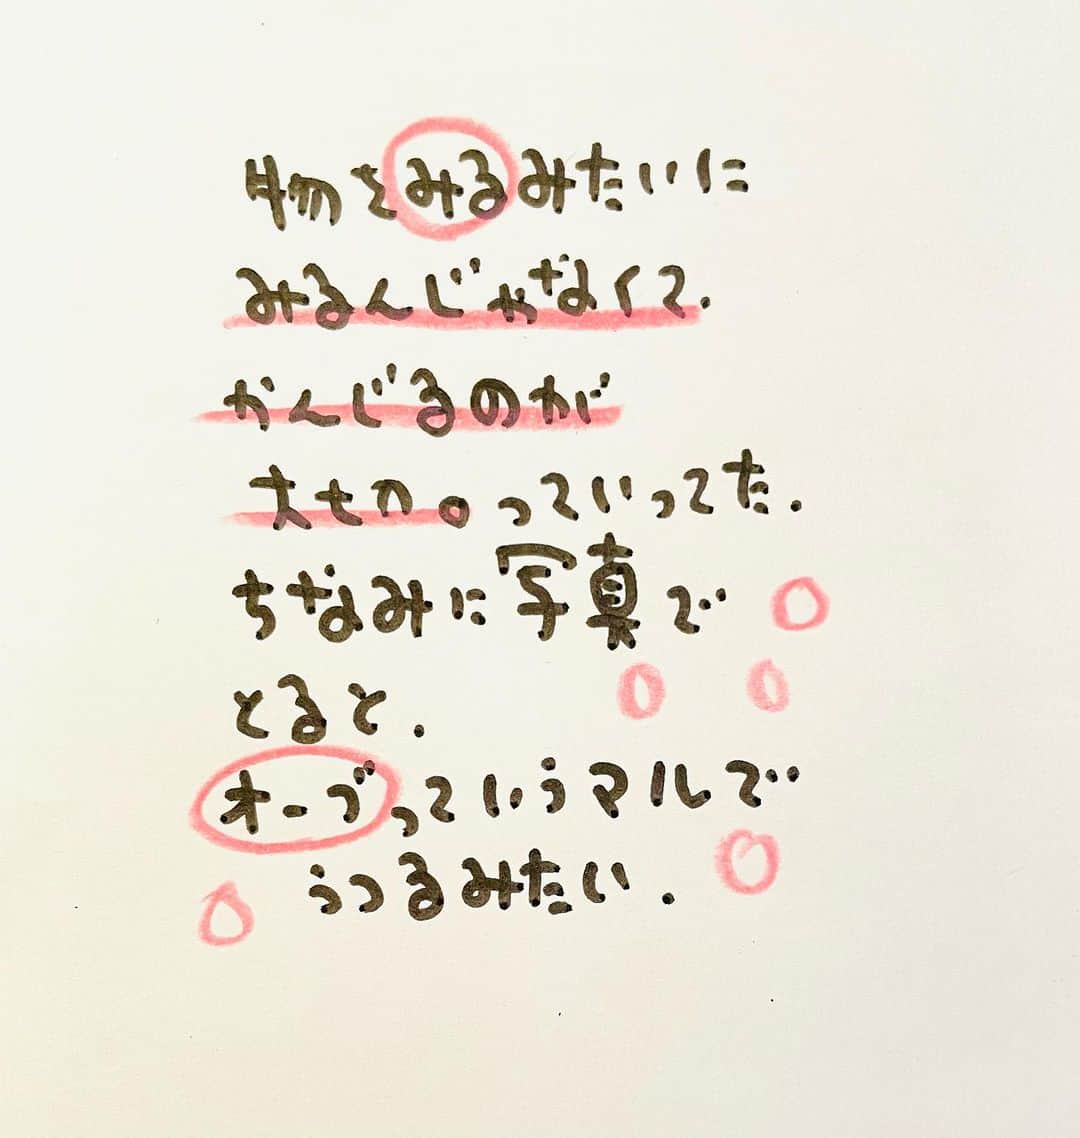 物をみるみたいに
みるんじゃなくて.
かんじるのが
大セツ。っていってた.
ちなみに写真で
とると.
オーブっていうマルで
うつるみたい.